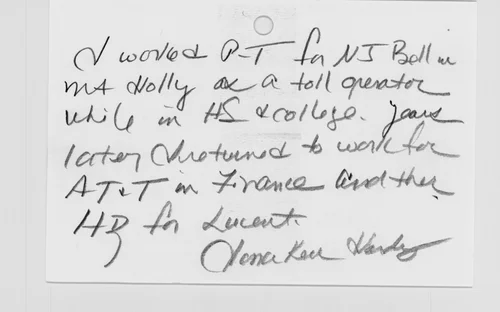 I worked P-T for NJ Bell in
Mt Holly as a toll operator
while in HS & college. Years
later I returned to work for
AT&T in Finance and then
for Lucent.